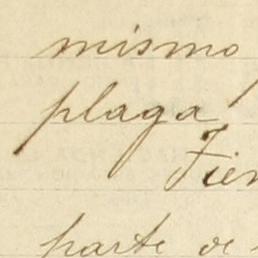 mismo
plaga
Tien
parte de